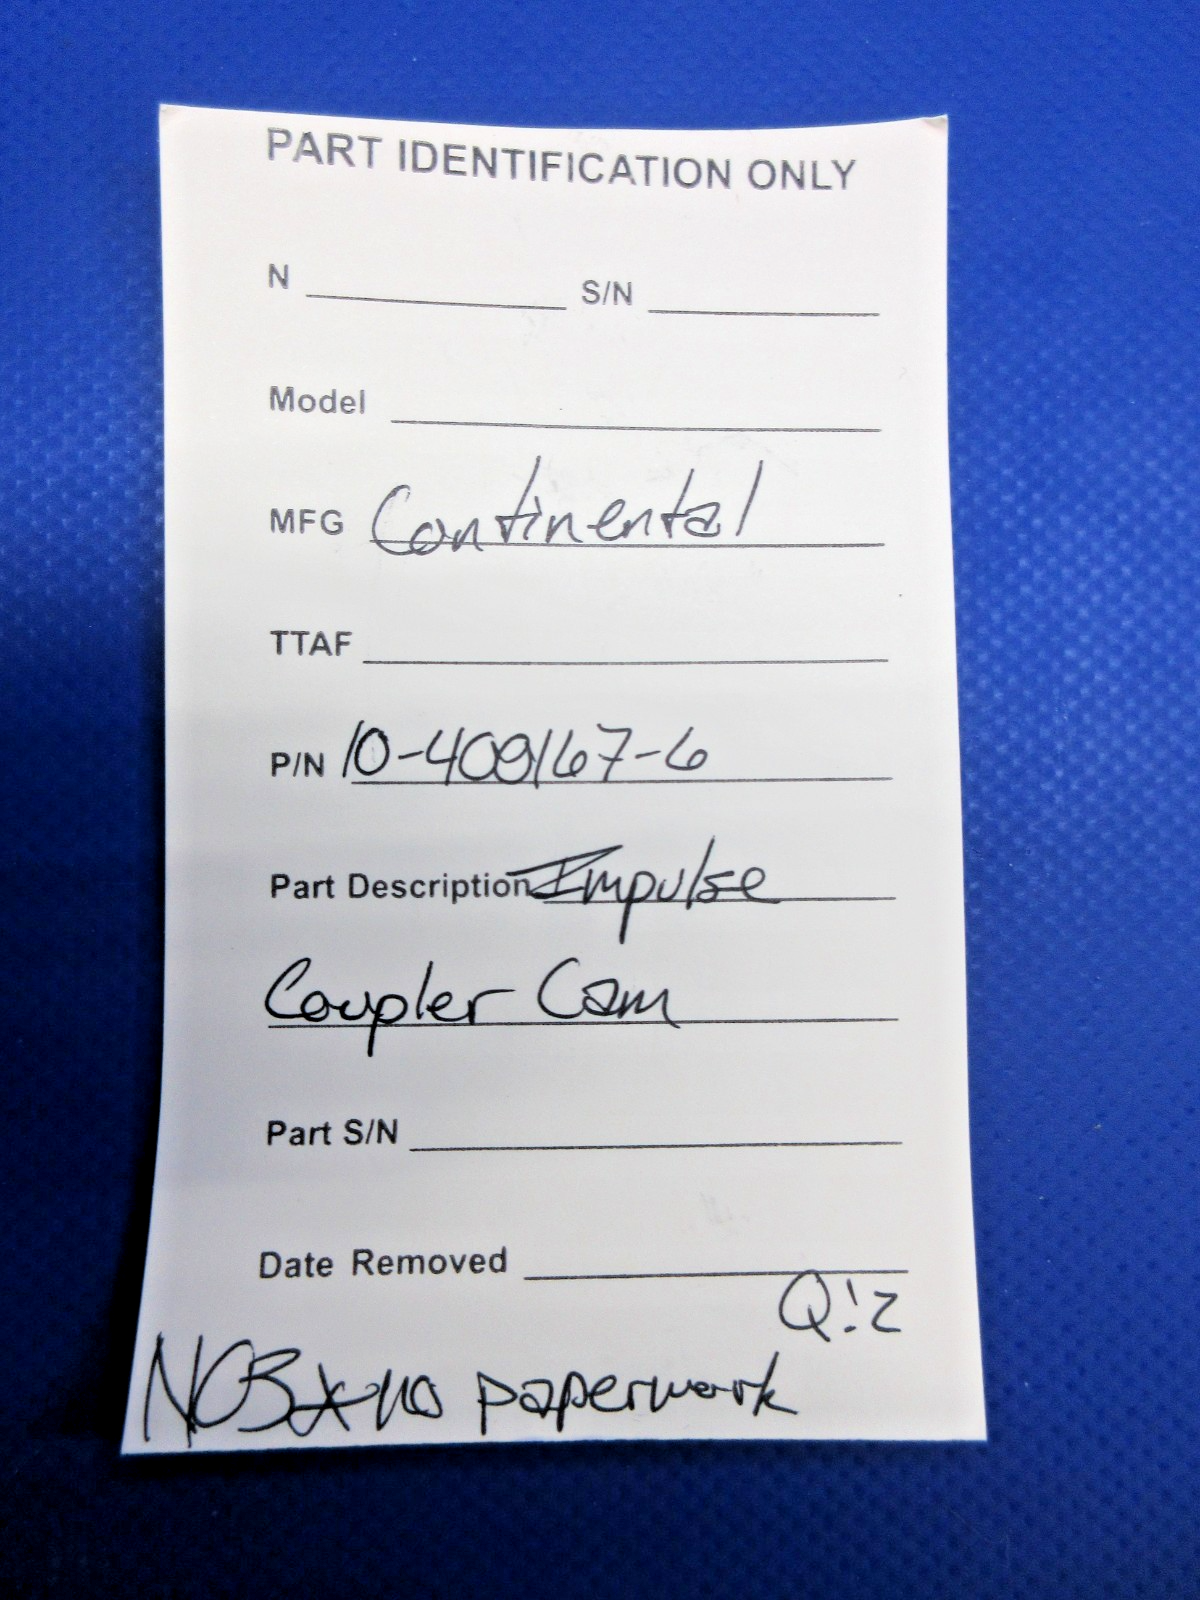 PART IDENTIFICATION ONLY
N S/N
Model
MFG Continental
TTAF
P/N 10-400167-6
Part Description Impulse
Coupler Cam
Part S/N
Date Removed
Q:2
no paperwork